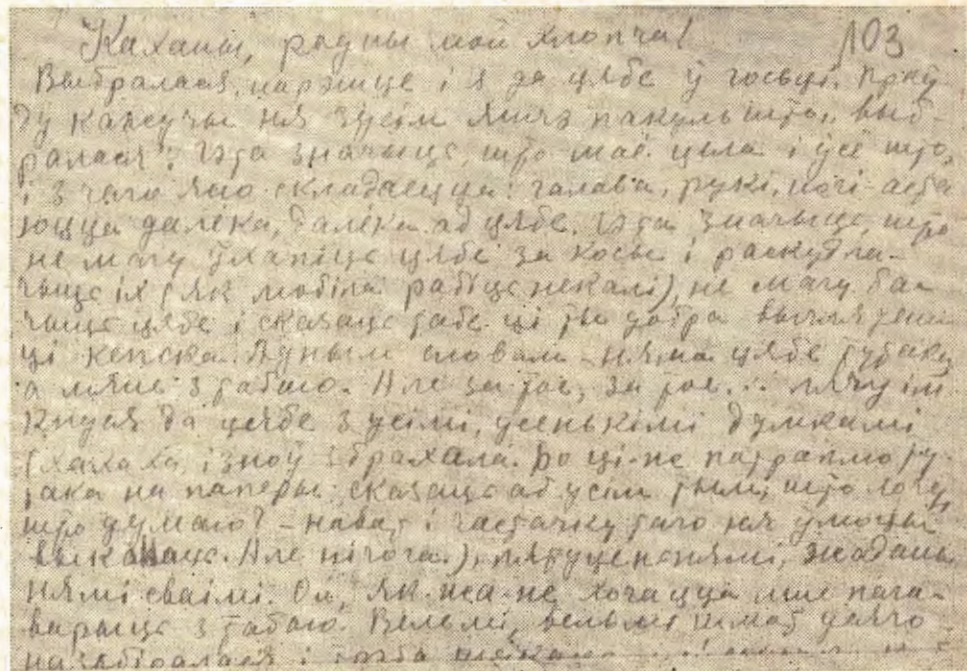 Каханы, родны мой хлопча! 103
Выбралася, нарэшце і я да цябе ў госьці. Праў
ду кажучы ня зусім яшчэ пакуль што, выб-
ралася? Гэта значыць, што маё цела і ўсё што,
і з чаго яно складаецца: галава, рукі, ногі - аста
юцца далёка, далёка ад цябе. Гэта значыць, што
не магу ўхапіць цябе за косы і раскудла-
чыць іх (як любіла рабіць некалі), не магу ба
чыць цябе і сказаць табе ці ты добра выглядзеш
ці кепска. Адным словам - няма цябе тутака,
а мяне з табою. Але за тое, за тое... лячу ім
да цябе з усімі, усенькімі думкамі
(хахаха, ізноў збрахала. Бо ці-не патраплю ту
така на паперы сказаць аб усім тым, што хочу,
што думаю? - нават і частачку таго ня ўмоцы
выканаць. Але нічога.), жадань
нямі сваімі. Ох, як жа-не хочацца мне пага-
варыць з табою. Вельмі, вельмі шмат чаго
назьбіралася і трэба